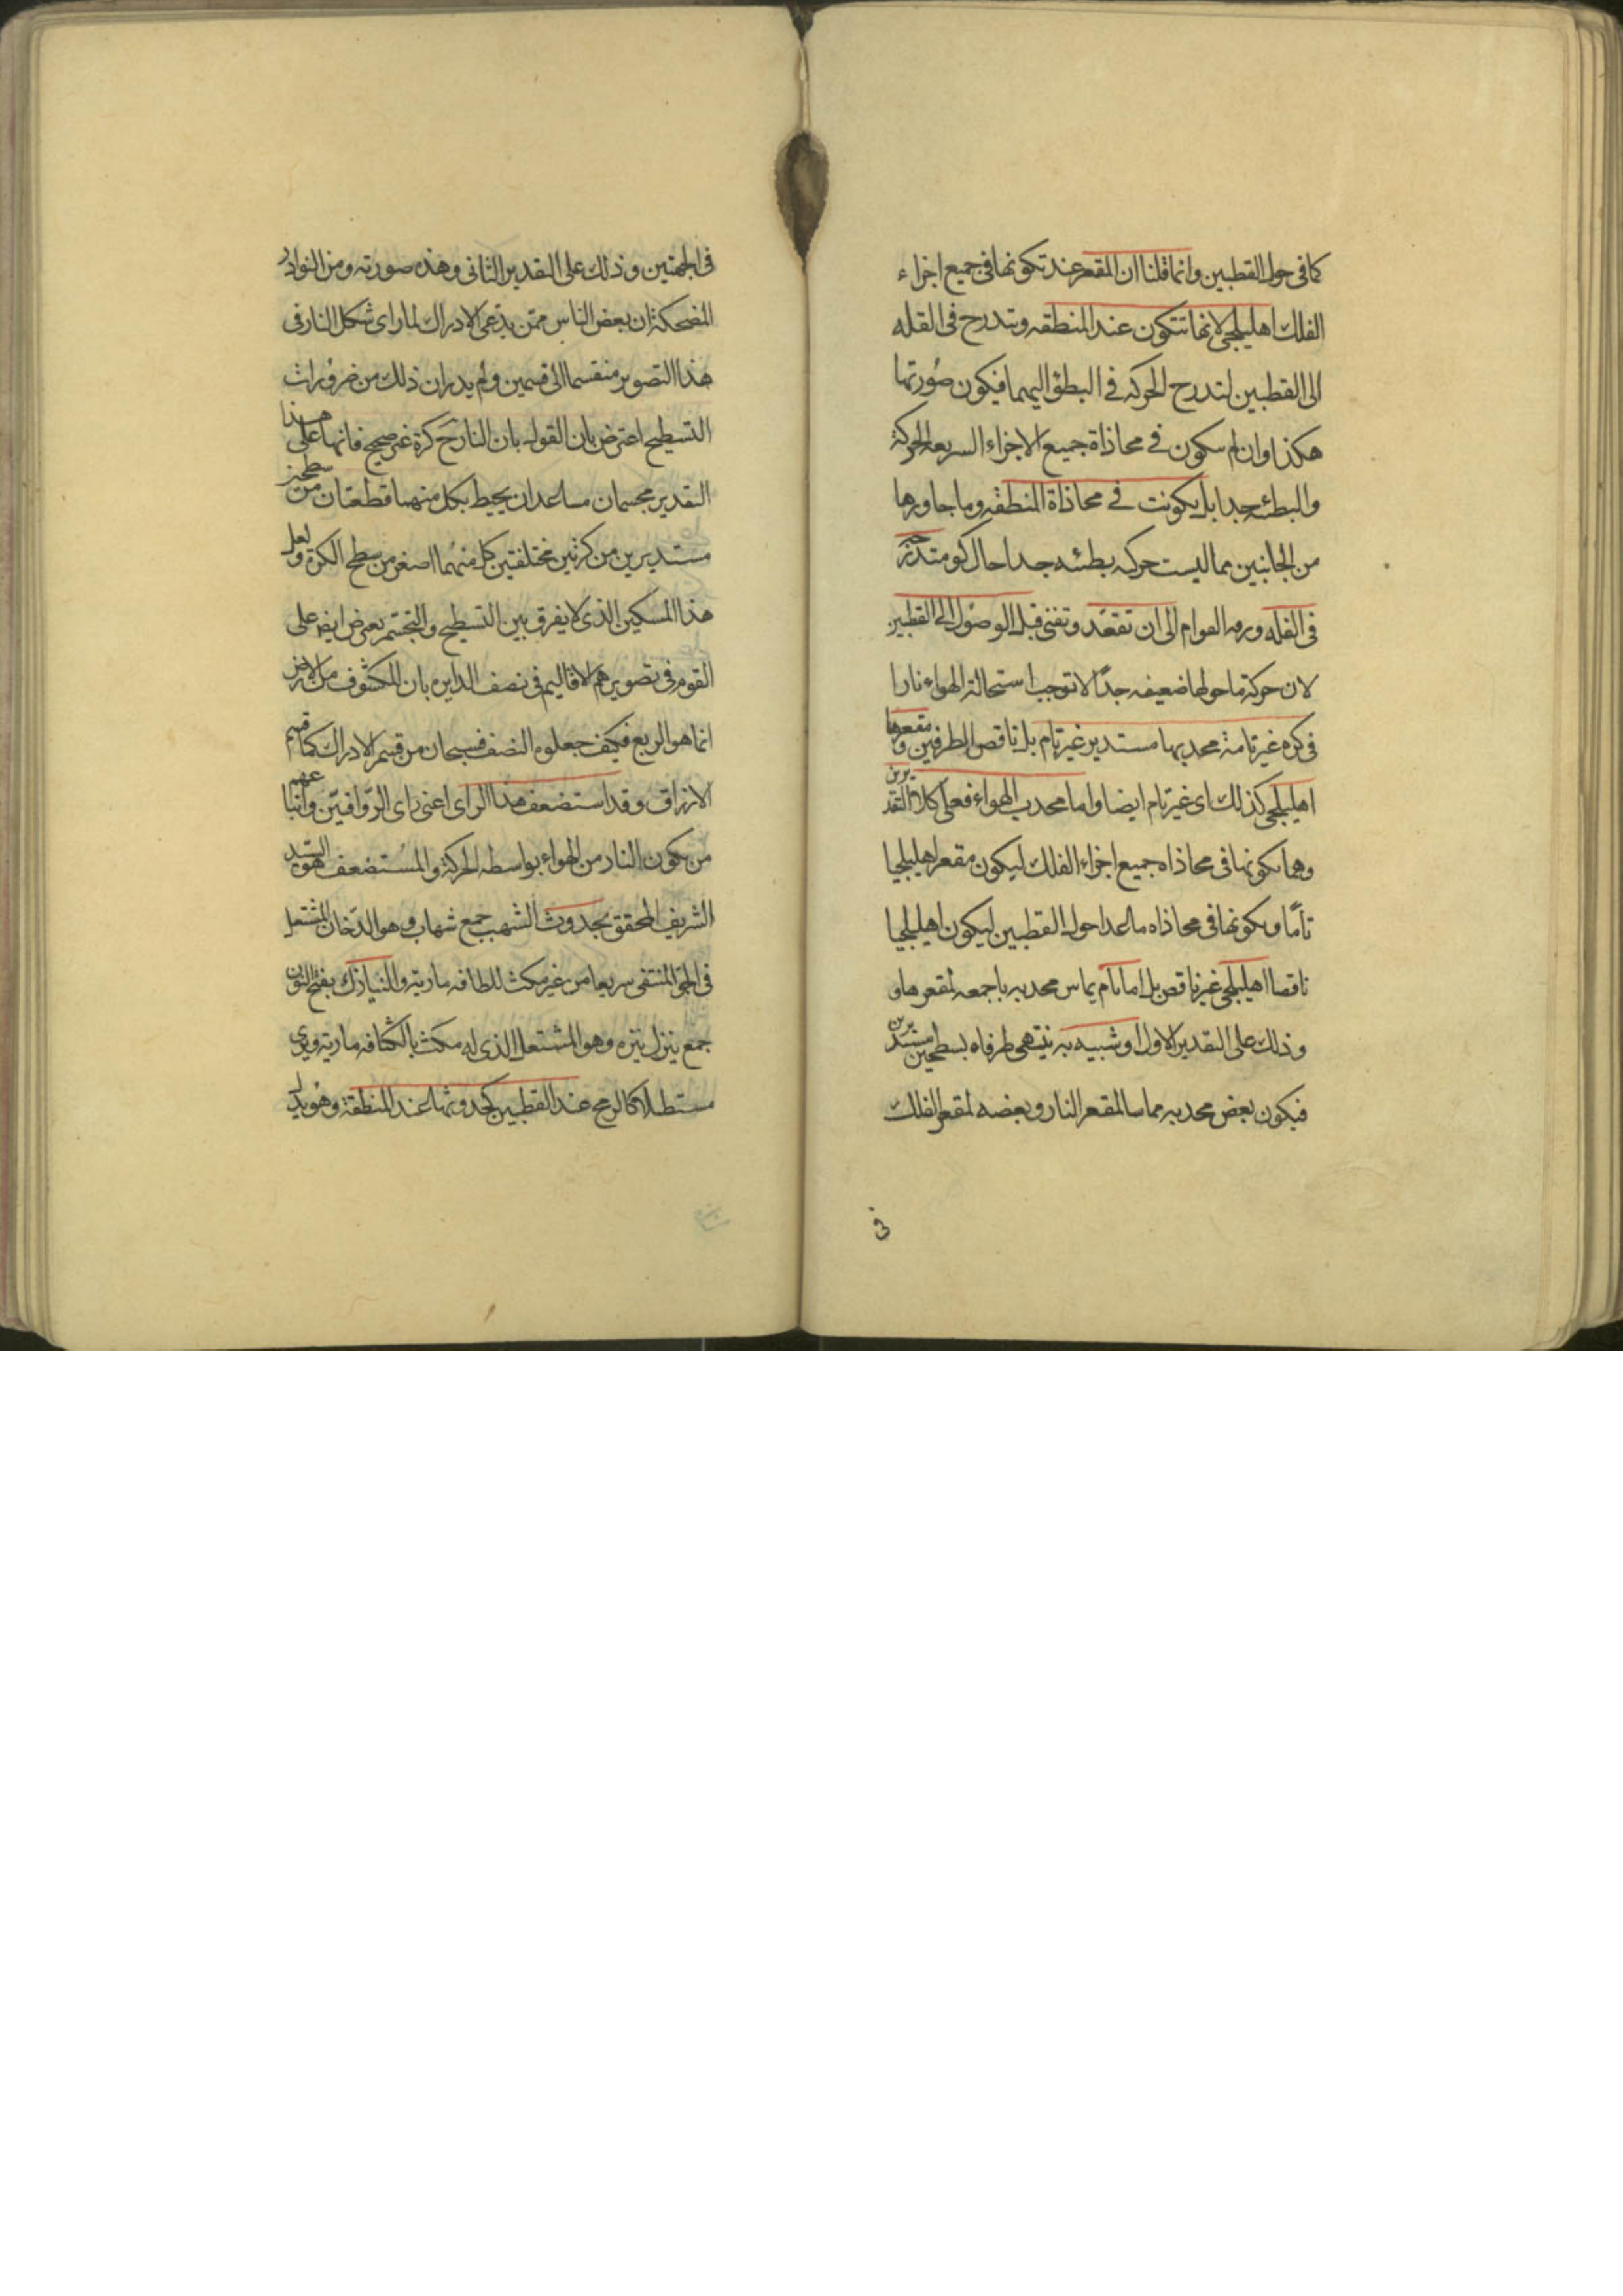 كما فى حول القطبين وانما قلنا ان المقعر عند تكونها فى جميع اجزاء
الفلك اهليلجى لانها تتكون عند المنطقه وتتدرج فى القله
الى القطبين لتدرج الحركه فى البطؤ اليهما فيكون صورتها
هكذا وان لم تتكون فى محاذاة جميع الاجزاء السريعه الحركة
والبطئه جدا بل يكونت فى محاذاة المنطقه وما جاورها
من الجانبين مما ليست حركه بطئه جدا حال كو متدرّ
فى القله ورقه القوام الى ان تقعّد وتفنى قبل الوصول الى القطبين
لان حركة ما حولها ضعيفه جدّا لا توجب استحالة الهواء نارا
فى كره غير تامة محدبها مستدير غير تام بل ناقص الطرفين و مقعرها
اهليلجى كذلك اى غير تام ايضا واما محدب الهواء فعلى كلا التقديرين
وهما تكونها فى محاذاه جميع اجزاء الفلك ليكون مقعر اهليلجيا
تامّا وتكونها فى محاذاه ما عدا حول القطبين ليكون اهليلجيا
ناقصا اهليلجى غير ناقص بل اما تام يماس محدبه باجمعه لمقعرها و
وذلك على التقدير الاول او شبيه به ينتهى طرفاه بسطحين مستديرين
فيكون بعض محدبه مماسا لمقعر النار وبعضه لمقعر الفلك
فى
فى الجهتين وذلك على التقدير الثانى وهذه صورته ومن النوادر
المضحكة ان بعض الناس ممّن يدّعى الادراك لما راى شكل النار فى
هذا التصوير منقسما الى قسمين ولم يدر ان ذلك من ضرورات
التسطيح اعترض بان القول بان النار ح كرة غير صحيح فانها على هذا
التقدير مجسمان متباعدان يحيط بكل منهما قطعتان من سطحين
مستديرين من كرتين مختلفتين كل منهما اصغر من سطح الكرة ولعل
هذا المسكين الذى لا يفرق بين التسطيح والتجسّم يعرض ايضا على
القوم فى تصويرهم الاقاليم فى نصف الدايره بان المكشوف من الارض
انما هو الربع فكيف جعلوه النصف فسبحان من قسم الادراك كما قسم
الارزاق وقد استضعف هذا الراى اعنى راى الرّواقيّن واتباعهم
من تكون النار من الهواء بواسطه الحركة والمستضعف هو السيد
الشريف المحقق بحدوث الشهب جمع شهاب وهو الدّخان المشتعل
فى الجوّ المنتفى سريعا من غير مكث للطافه ماريته والنيازك بفتح النون
جمع نيزك بتزه وهو المشتعل الذى له مكث بالكثافه ماريته ويرى
مستطيلا كالرمح عند القطبين كحدوثها عند المنطقة وهو يدل